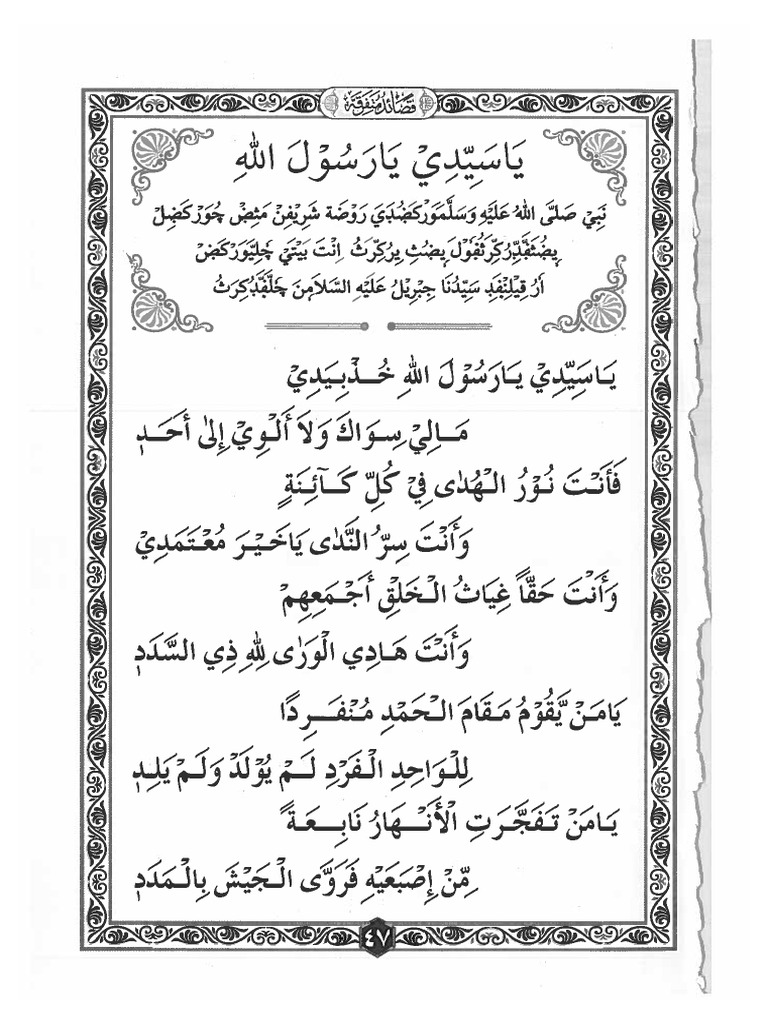 قَصَائِدُ مُتَفَرِّقَة
يَا سَيِّدِيْ يَا رَسُوْلَ اللهِ
نَبِيْ صَلَّى اللهُ عَلَيْهِ وَسَلَّمَوَرْكَضُدَيَ رَوْضَة شَرِيفِنْ مَثِضْ چُوَرْكَضِلْ
اَرُ قِيلِنْفَدِ سَيِّدُنَا جِبْرِيْلُ عَلَيْهِ السَّلَامِنَ چَلَّفَّڊُكِرَتُ
يَا سَيِّدِيْ يَا رَسُوْلَ اللهِ خُذْ بِيَدِيْ
مَالِيْ سِوَاكَ وَلَا أَلْوِيْ إِلىٰ أَحَدٍ
فَأَنْتَ نُوْرُ الْهُدٰى فِيْ كُلِّ كَآئِنَةٍ
وَأَنْتَ سِرُّ النَّدٰى يَا خَيْرَ مُعْتَمَدِيْ
وَأَنْتَ حَقًّا غِيَاثُ الْخَلْقِ أَجْمَعِهِمْ
وَأَنْتَ هَادِي الْوَرٰى لِلّٰهِ ذِي السَّدَدِ
يَا مَنْ يَّقُوْمُ مَقَامَ الْحَمْدِ مُنْفَرِدًا
لِلْوَاحِدِ الْفَرْدِ لَمْ يُوْلَدْ وَلَمْ يَلِدِ
يَا مَنْ تَفَجَّرَتِ الْأَنْهَارُ نَابِعَةً
مِّنْ إِصْبَعَيْهِ فَرَوَّى الْجَيْشَ بِالْمَدَدِ
٤٧